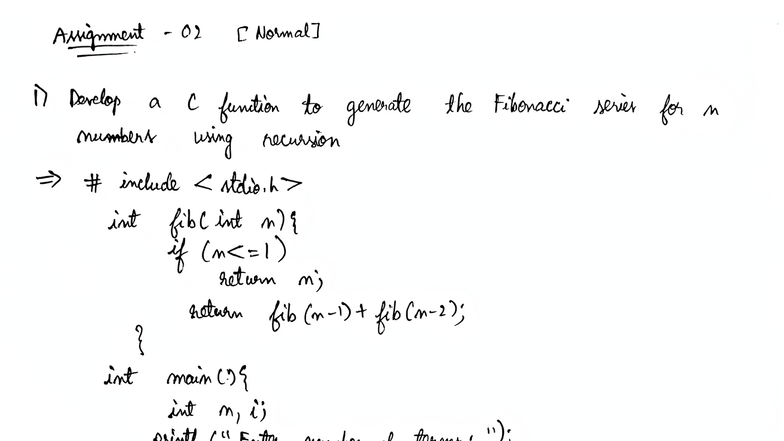 Assignment - 02 [Normal]
1) Develop a C function to generate the Fibonacci series for n
numbers using recursion
⇒ # include <stdio.h>
int fib( int n){
if (n<=1)
return n;
return fib(n-1)+ fib(n-2);
}
int main(){
int n, i;
printf ("Enter number of terms: ");